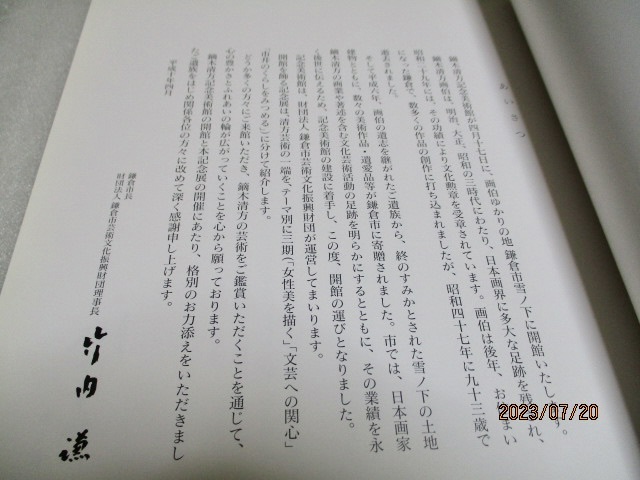 あいさつ
鏑木清方記念美術館が四月十七日に、画伯ゆかりの地 鎌倉市雪ノ下に開館いたします。
鏑木清方画伯は、明治、大正、昭和の三時代にわたり、日本画界に多大な足跡を残され、
昭和二十九年には、その功績により文化勲章を受章されています。画伯は後年、お住まい
になった鎌倉で、数多くの作品の創作に打ち込まれましたが、昭和四十七年に九十三歳で
逝去されました。
そして平成六年、画伯の遺志を継がれたご遺族から、終のすみかとされた雪ノ下の土地
建物とともに、数々の美術作品・遺愛品等が鎌倉市に寄贈されました。市では、日本画家
鏑木清方の画業や著述を含む文化芸術活動の足跡を明らかにするとともに、その業績を永
く後世に伝えるため、記念美術館の建設に着手し、この度、開館の運びとなりました。
記念美術館は、財団法人 鎌倉市芸術文化振興財団が運営してまいります。
開館を飾る記念展は、清方芸術の一端を、テーマ別に三期（「女性美を描く」「文芸への関心」
「市井のくらしをみつめる」）に分けて紹介します。
どうか多くの方々にご来館いただき、鏑木清方の芸術をご鑑賞いただくことを通じて、
心の豊かさとふれあいの輪が広がっていくことを心から願っております。
鏑木清方記念美術館の開館と本記念展の開催にあたり、格別のお力添えをいただきまし
たご遺族をはじめ関係各位の方々に改めて深く感謝申し上げます。
平成十年四月
鎌倉市長
財団法人 鎌倉市芸術文化振興財団理事長
竹内 謙
2023/07/20